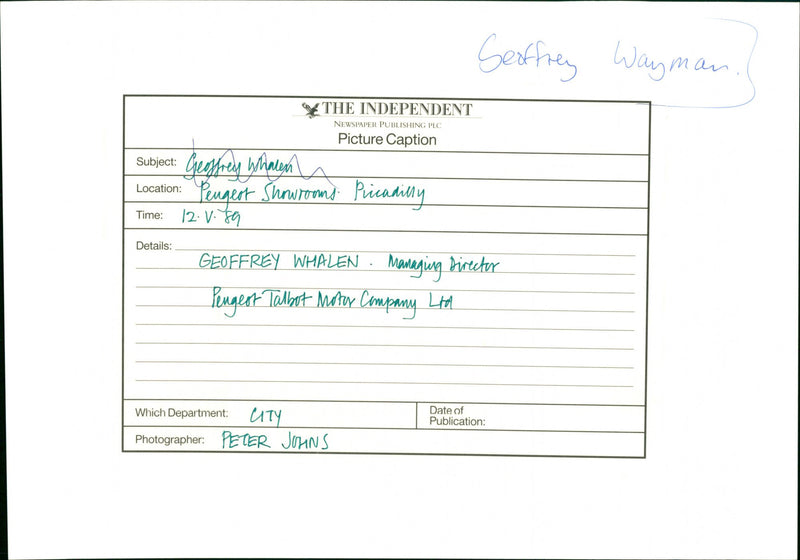 Geoffrey Wayman.
THE INDEPENDENT
NEWSPAPER PUBLISHING PLC
Picture Caption
Subject: Geoffrey Whalen
Location: Peugeot Showrooms. Piccadilly
Time: 12.V.89
Details:
GEOFFREY WHALEN. Managing Director
Peugeot Talbot Motor Company Ltd
Which Department: CITY
Date of
Publication:
Photographer: PETER JOHNS